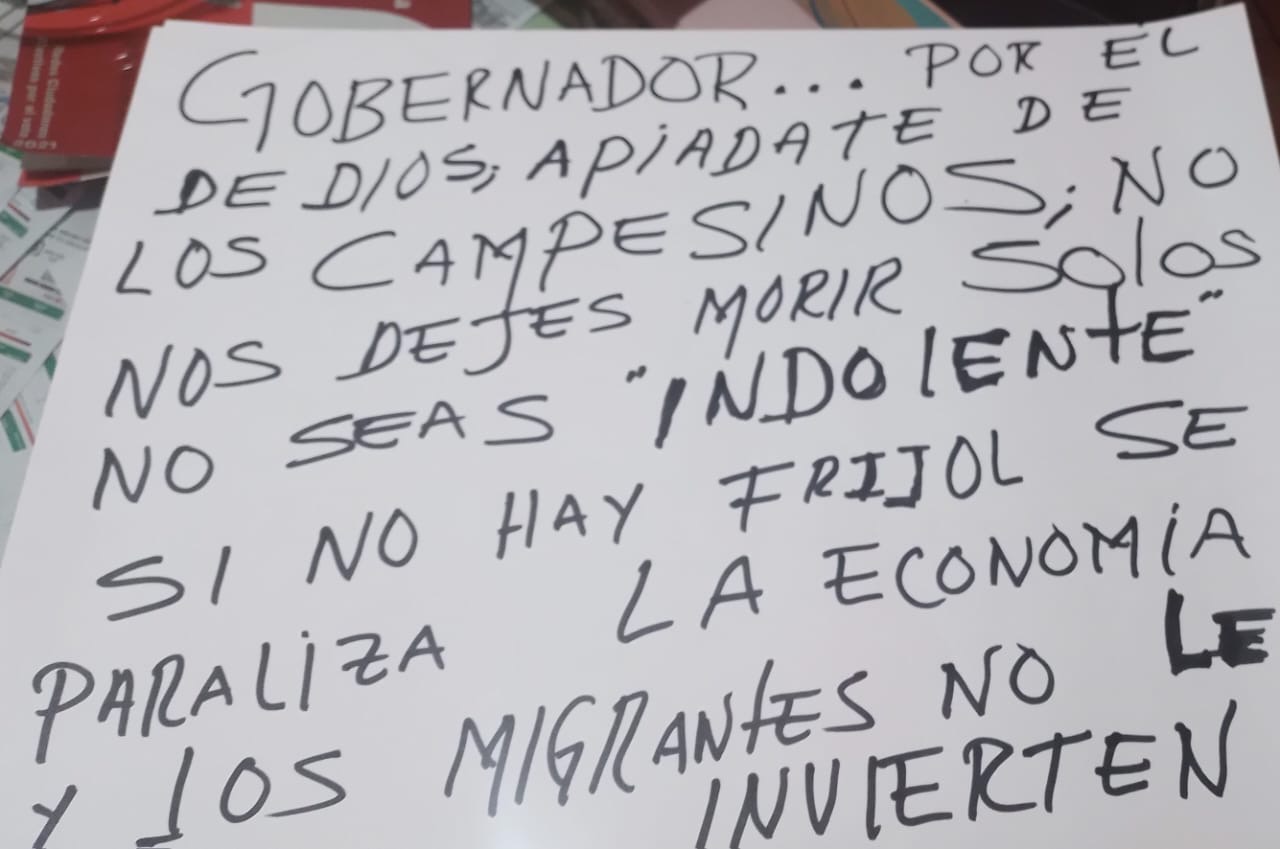 GOBERNADOR... POR EL
DE DIOS; APIADATE DE
LOS CAMPESINOS; NO
NOS DEJES MORIR SOLOS
NO SEAS "INDOLENTE"
SI NO HAY FRIJOL SE
PARALIZA LA ECONOMÍA
Y LOS MIGRANTES NO LE
INVIERTEN
2021